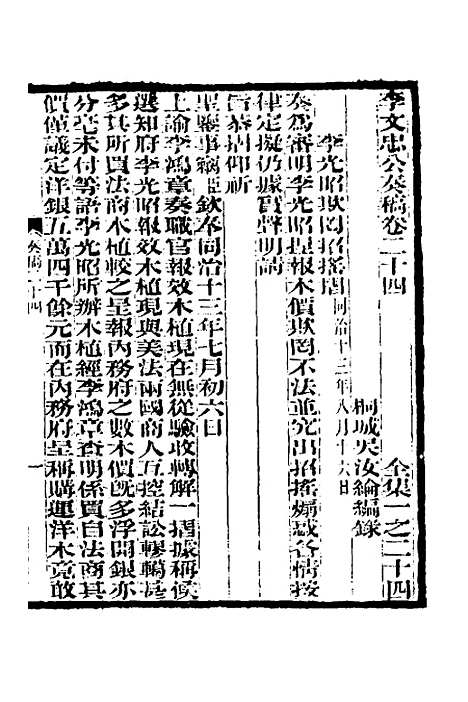 李文忠公奏稿卷二十四 全集一之二十四
桐城吳汝綸編錄
李光昭欺罔招搖摺同治十三年八月十六日
奏爲審明李光昭捏報木價欺罔不法並究出招搖煽惑各情按
律定擬仍據實聲明請
旨恭摺仰祈
聖鑒事竊臣欽奉同治十三年七月初六日
上諭李鴻章奏職官報效木植現在無從驗收轉解一摺據稱候
選知府李光昭報效木植現與美法兩國商人互控結訟轇轕甚
多其所買法商木植較之呈報內務府之數木價旣多浮開銀亦
分毫未付等語李光昭所辦木植經李鴻章查明係買自法商其
價僅議定洋銀五萬四千餘元而在內務府呈稱購運洋木竟敢
奏稿二十四
一